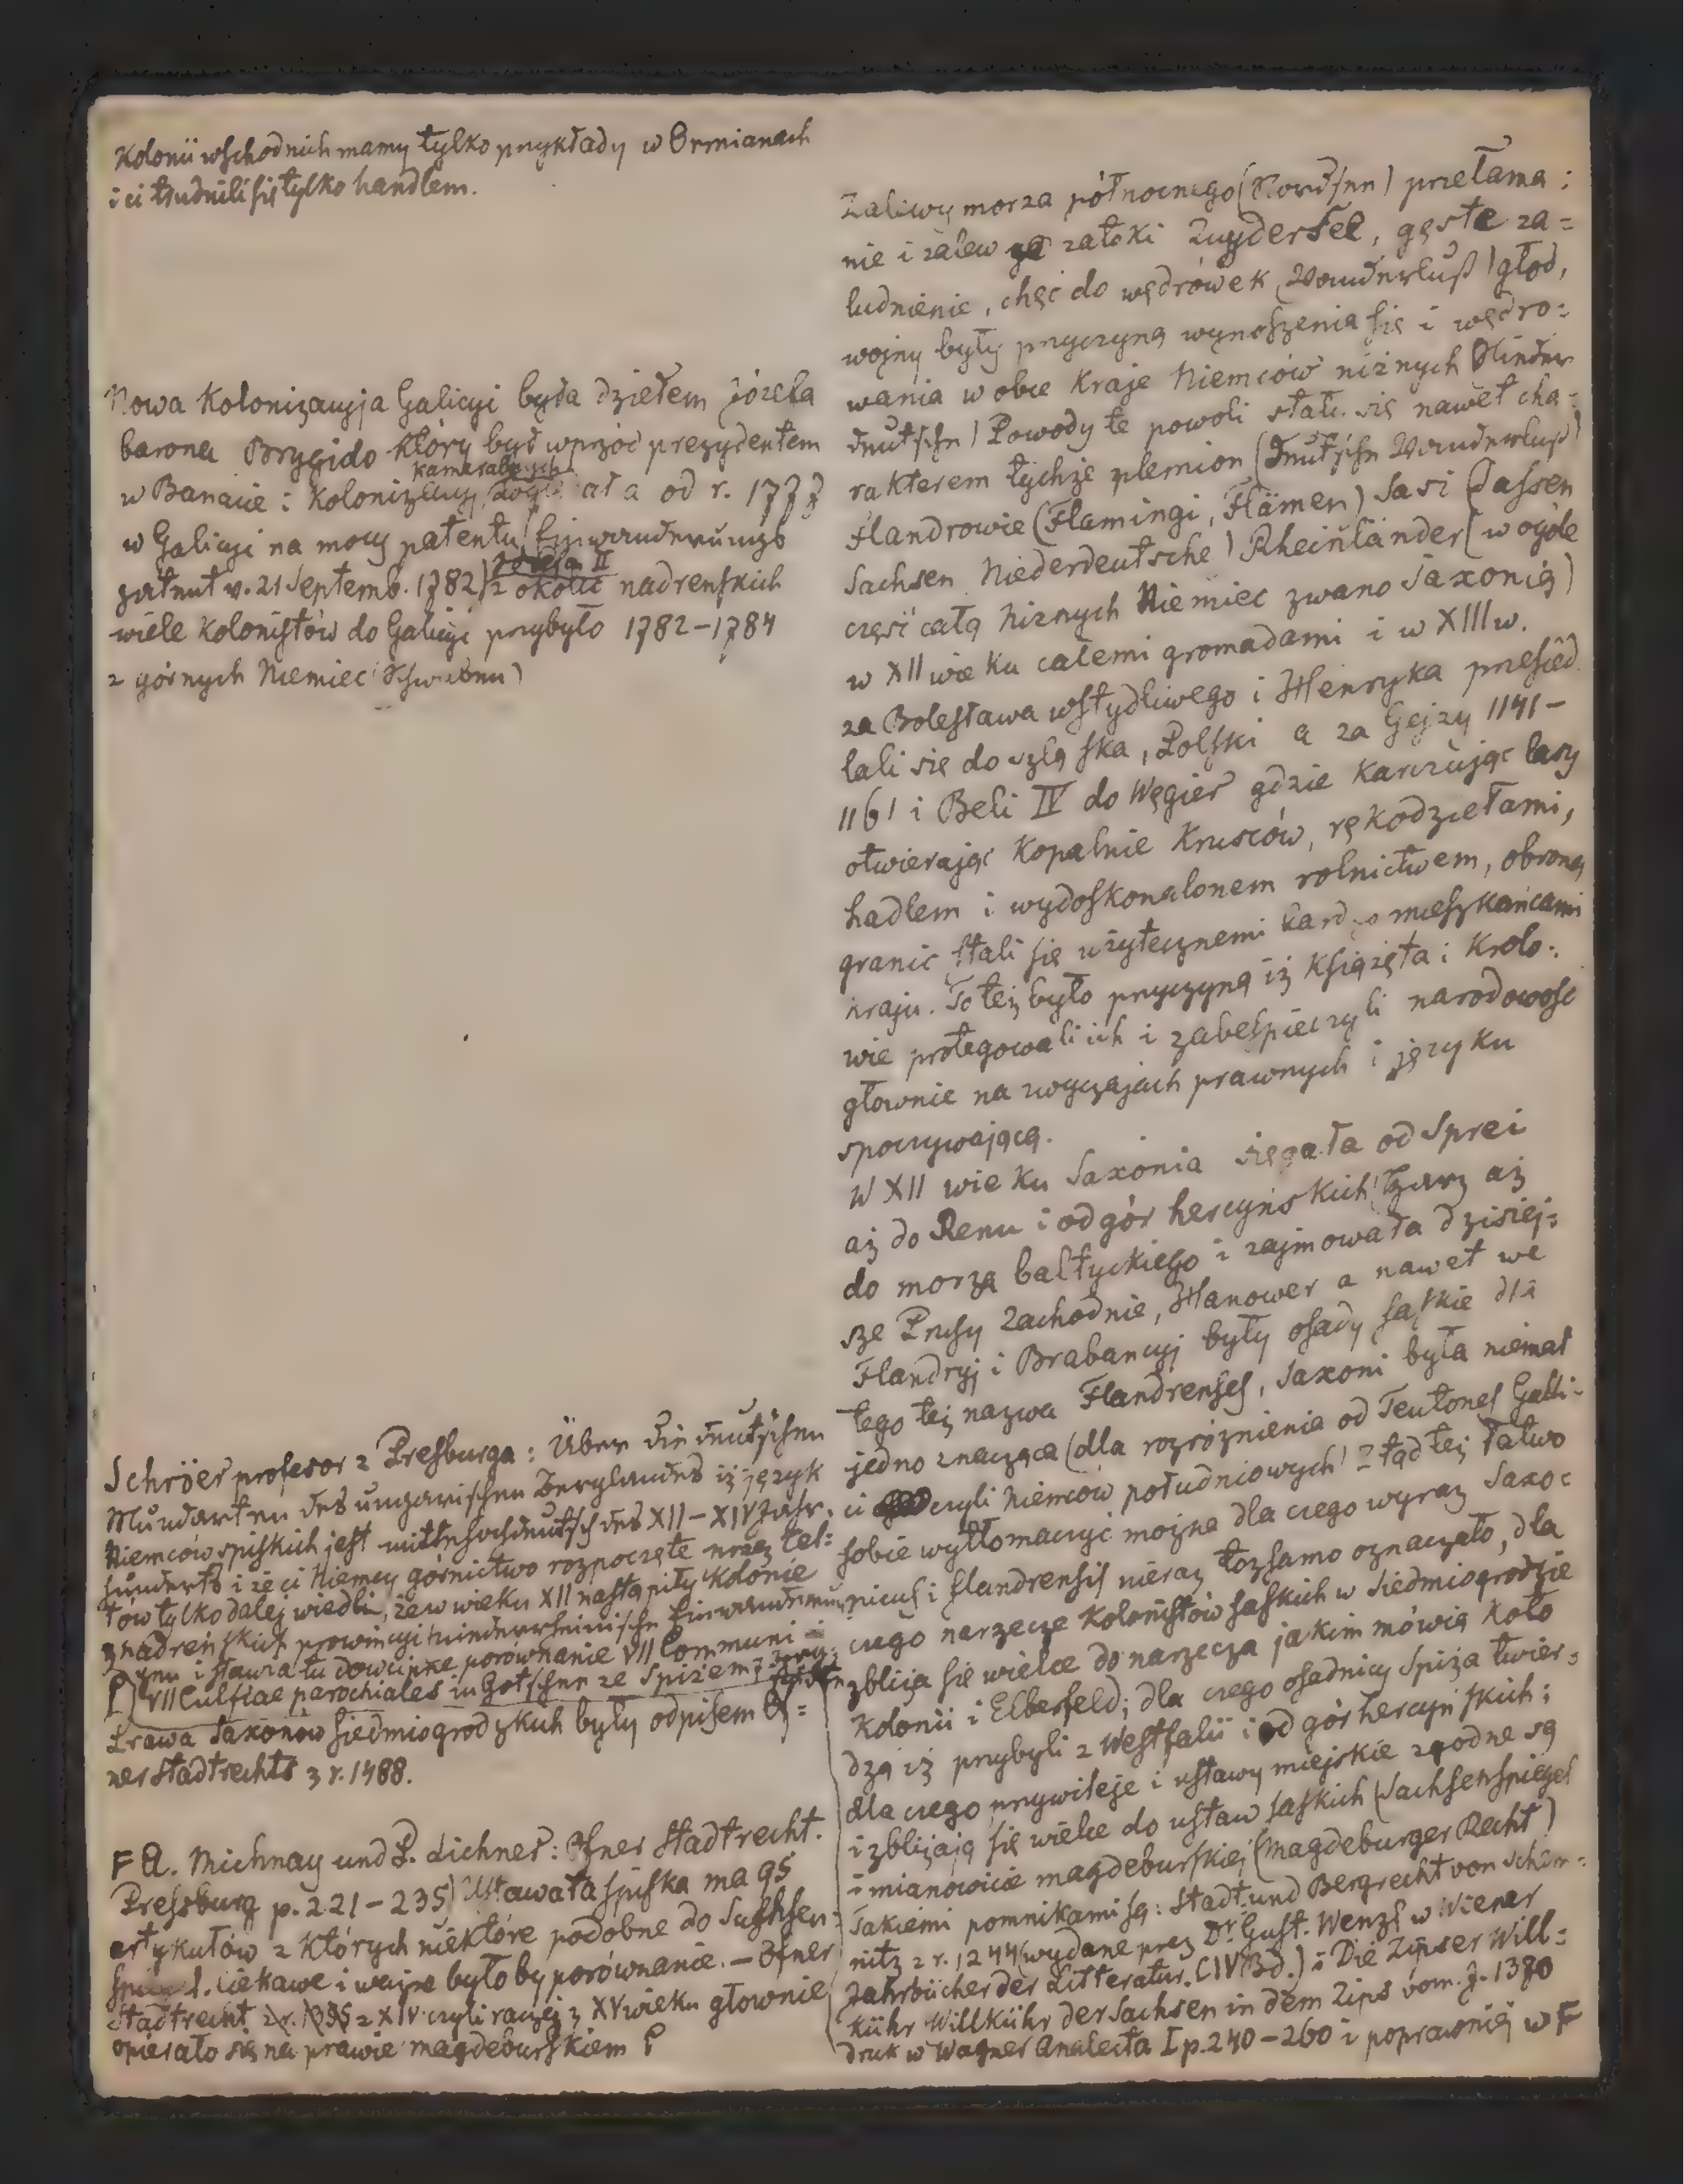 Kolonii wschodnich mamy tylko przykłady w Ormianach
i ci trudnili się tylko handlem.
Nowa Kolonizacyja Galicyi była dziełem Józefa
barona Brygido który był wprzód prezydentem
w Banacie i Kolonizacyj ała od r. 1777
kameralnych
w Galicyi na mocy patentu (Einwanderungs
patent v. 21 Septemb. 1782) z okolic nadreńskich
Józefa II
wiele Kolonistów do Galicyi przybyło 1782–1784
z górnych Niemiec (Schwaben)
Schröer profesor z Presburga: Über die deutschen
Mundarten des ungarischen Berglandes iż język
Niemców spiskich jest mittelhochdeutsch des XII–XIV Jahr.
hunderts i że ci Niemcy górnictwo rozpoczęte przez Cel:
tów tylko dalej wiedli, że w wieku XII nastąpiły Kolonie
z nadreńskich prowincyi niederrheinische Einwanderun
gen i stawia tu dowcipne porównanie VII Communi =
VII Culfiae parochiales in Gotschee ze Spiżem
Prawa Saxonów siedmiogrodzkich były odpisem Of=
ner Stadtrechts z r. 1488.
F A. Michnay und P. Lichner: Ofner Stadtrecht.
Pressburg p. 221–235) Ustawa ta spiska ma 95
artykułów z których niektóre podobne do Sachsen:
sp l. ciekawe i ważne byłoby porównanie. – Ofner
Stadtrecht z XIV czyli raczej z XV wieku głownie
opierało się na prawie magdeburskiem
Zaliwy morza północnego (Nordsee) przełama:
nie i zalew zatoki Zuydersee, gęste za=
ludnienie, chęć do wędrówek (Wanderlust) głód,
wojny były przyczyną wynoszenia się i wędro:
wania w obce Kraje Niemców niżnych (Nieder
deutsche) Powody te powoli stały się nawet cha=
rakterem tychże plemion (Deutsche Wanderlust)
Flandrowie (Flamingi, Flämen) Sasi (Sassen
Sachsen Niederdeutsche) Rheinländer (w ogóle
część całą niżnych Niemiec zwano Saxonią)
w XII wieku całemi gromadami i w XIII w.
za Bolesława wstydliwego i Henryka przesied
lali się do szląska, Polski a za Gejzy 1141–
1161 i Beli IV do Węgier gdzie Karczując lasy
otwierając Kopalnie Kruszców, rękodziełami,
hadlem i wydoskonalonem rolnictwem, obroną
granic stali się użytecznemi bardzo mieszkańcami
kraju. To też było przyczyną iż Książęta i Królo:
wie protegowali ich i zabespieczyli narodowość
głownie na zwyczajach prawnych i języku
spoczywającą.
W XII wieku Saxonia sięgała od Sprei
aż do Renu i od gór hercyńskich (Harz aż
do morza bałtyckiego i zajmowała dzisiej:
sze Prusy Zachodnie, Hanower a nawet we
Flandryj i Brabancyj były osady saskie dla
tego też nazwa Flandrenses, Saxoni była niemal
jedno znacząca (dla rozróżnienia od Teutones Galli=
ci czyli Niemców południowych) Ztąd też łatwo
sobie wytłomaczyć można dla czego wyraz Saxo=
nicus i flandrensis nieraz tożsamo oznaczało, dla
czego narzecze Kolonistów saskich w Siedmiogrodzie
zbliża się wielce do narzecza jakim mówią Koło
Kolonii i Elberfeld; dla czego osadnicy Spiża twier=
dzą iż przybyli z Westfalii i od gór hercyńskich;
dla czego przywileje i ustawy miejskie zgodne są
i zbliżają się wielce do ustaw saskich (Sachsenspiegel
i mianowicie magdeburskiej (Magdeburger Recht)
Takiemi pomnikami są: Stadt und Bergrecht von Schem=
nitz z r. 1244 (wydane przez Dr. Gust. Wenzl w Wiener
Jahrbücher der Litteratur. CIV Bd.) i Die Zipser Will=
kühr Willkühr der Sachsen in dem Zips vom J. 1370
druk w Wagner Analecta I p. 240–260 i poprawniej w F